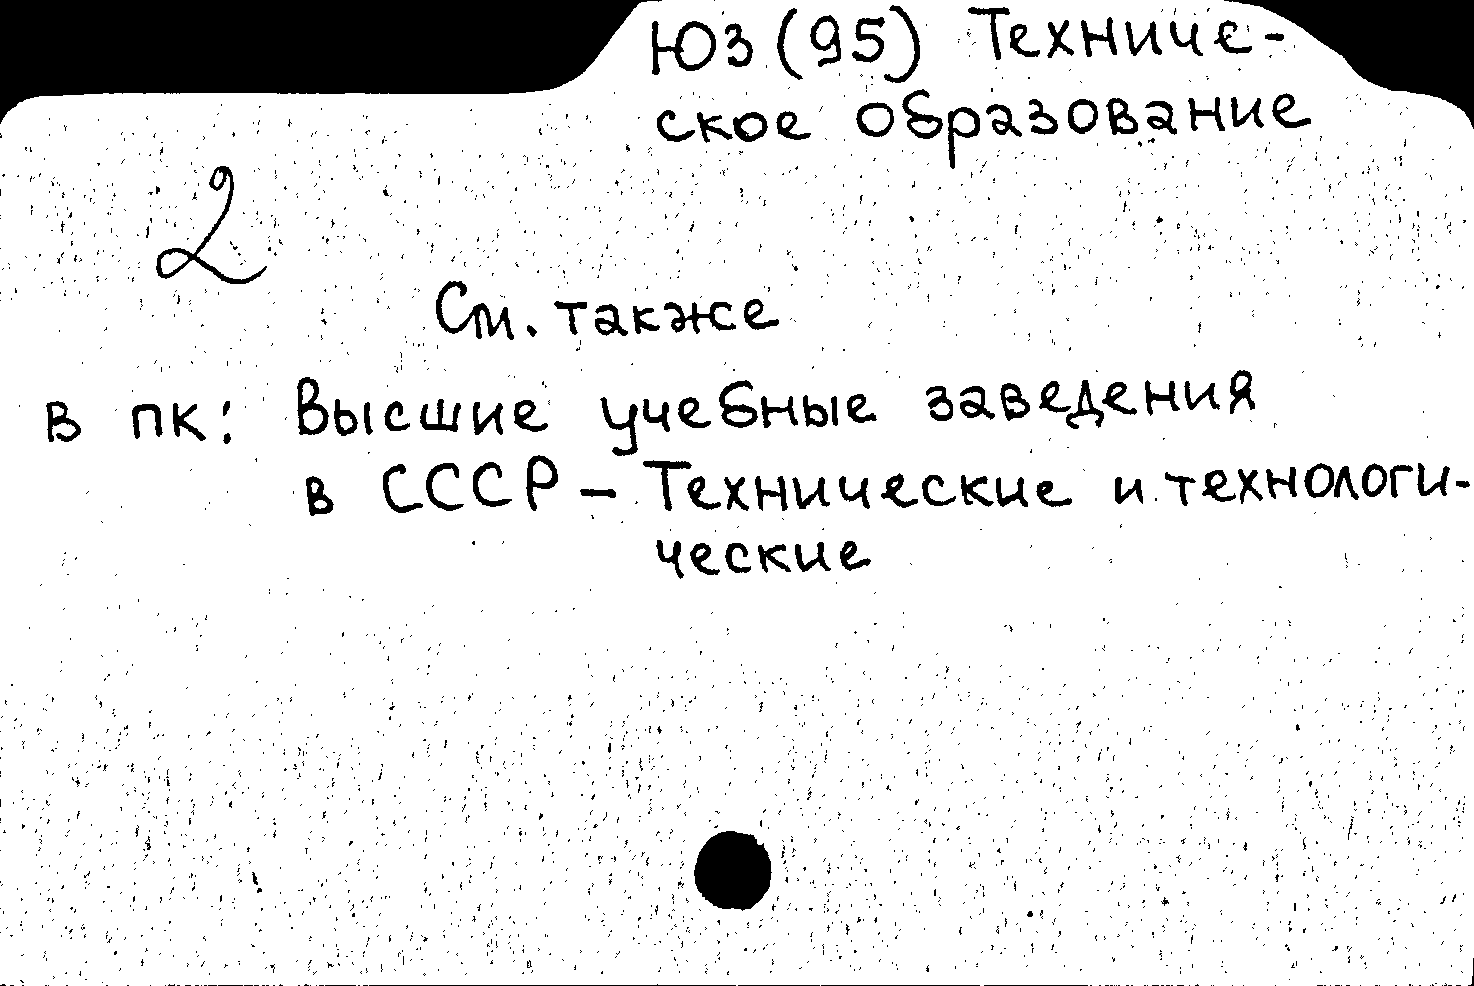 Ю3(95) Техниче-
ское образование
2
См. также
в пк: Высшие учебные заведения
в СССР – Технические и технологи-
ческие